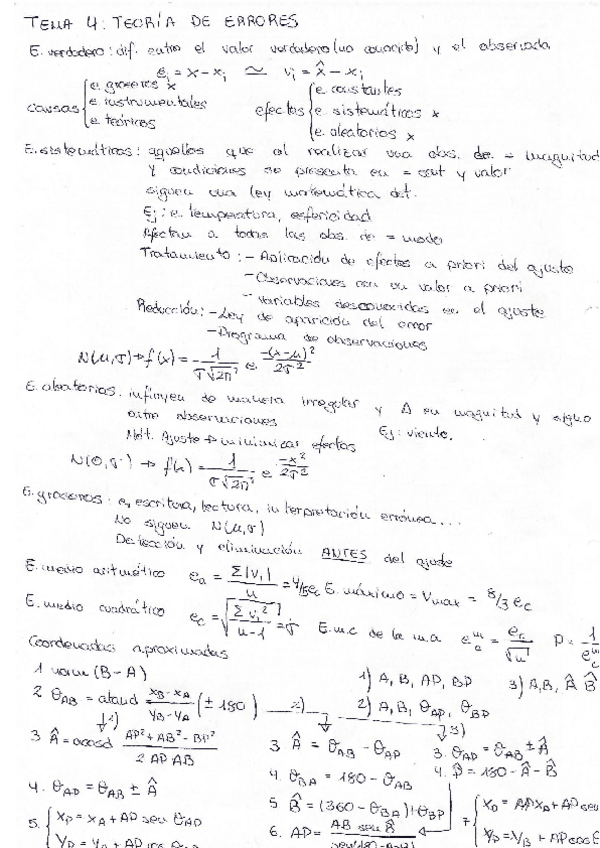 TEMA 4: TEORÍA DE ERRORES
E. verdadero: dif. entre el valor verdadero (no conocido) y el observado
ei = x - xi ≃ vi = x̂ - xi
causas { e. groseros x
e. instrumentales
e. teóricos
efectos { e. constantes
e. sistemáticos x
e. aleatorios x
E. sistemáticos: aquellos que al realizar una obs. de = magnitud
y condiciones se presenta en = cant y valor
siguen una ley matemática det.
Ej: e. temperatura, esfericidad
Afectan a todas las obs. de = modo
Tratamiento: - Aplicación de efectos a priori del ajuste
- Observaciones con un valor a priori
- Variables desconocidas en el ajuste
Reducción: - Ley de aparición del error
- Programa de observaciones
N(μ,σ) → f(x) = 1/(σ√2π) e^(-(x-μ)²/2σ²)
E. aleatorios. influyen de manera irregular y Δ en magnitud y signo
entre observaciones Ej: viento.
Mét. Ajuste → minimizar efectos
N(0,σ) → f(x) = 1/(σ√2π) e^(-x²/2σ²)
E. groseros: e, escritura, lectura, interpretación errónea...
No siguen N(μ,σ)
Detección y eliminación ANTES del ajuste
E. medio aritmético ea = Σ|vi|/n = 4/5 ec E. máximo = Vmax = 8/3 ec
E. medio cuadrático ec = √(Σvi²/(n-1)) = σ̂ E.m.c de la m.a e = ec/√n P = 1
Coordenadas aproximadas
1 (B-A) 1) A, B, AP, BP 3) A, B, Â B̂
2 θAB = atand (xB-xA)/(yB-yA) (± 180) 2) A, B, θAP, θBP
3 Â = acosd (AP²+AB²-BP²)/(2 AP AB) 3. Â = θAB - θAP 3. θAP = θAB ± Â
4. θBA = 180 - θAB 4. P̂ = 180 - Â - B̂
4. θAP = θAB ± Â 5 B̂ = (360 - θBA) + θBP
5. { xP = xA + AP sen θAP 6. AP = AB sen B̂
yP = yA + AP cos θ